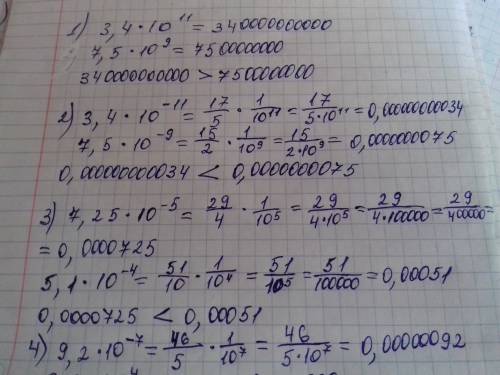 1) 3,4·10¹¹ = 340000000000
7,5·10⁹ = 750000000
34000000000 > 750000000
2) 3,4·10⁻¹¹ = 17/5 · 1/10¹¹ = 17/5·10¹¹ = 0,000000000034
7,5·10⁻⁹ = 15/2 · 1/10⁹ = 15/2·10⁹ = 0,0000000075
0,000000000034 < 0,0000000075
3) 7,25·10⁻⁵ = 29/4 · 1/10⁵ = 29/4·10⁵ = 29/4·100000 = 29/400000 =
= 0,0000725
5,1·10⁻⁴ = 51/10 · 1/10⁴ = 51/10⁵ = 51/100000 = 0,00051
0,0000725 < 0,00051
4) 9,2·10⁻⁷ = 46/5 · 1/10⁷ = 46/5·10⁷ = 0,00000092